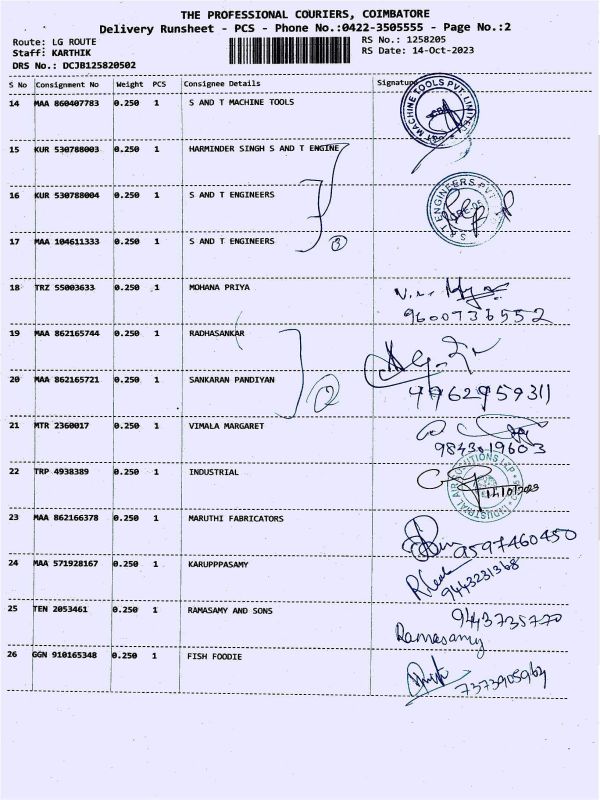 THE PROFESSIONAL COURIERS, COIMBATORE
Delivery Runsheet - PCS - Phone No.:0422-3505555 - Page No.:2
Route: LG ROUTE
Staff: KARTHIK
DRS No.: DCJB125820502
RS No.: 1258205
RS Date: 14-Oct-2023
S No Consignment No Weight PCS Consignee Details Signature
14 MAA 860407783 0.250 1 S AND T MACHINE TOOLS
T MACHINE TOOLS PVT LIMITED
15 KUR 530788003 0.250 1 HARMINDER SINGH S AND T ENGINE
16 KUR 530788004 0.250 1 S AND T ENGINEERS
S & T ENGINEERS PVT
17 MAA 104611333 0.250 1 S AND T ENGINEERS
3
18 TRZ 55003633 0.250 1 MOHANA PRIYA
9600736552
19 MAA 862165744 0.250 1 RADHASANKAR
20 MAA 862165721 0.250 1 SANKARAN PANDIYAN
2
21 MTR 2360017 0.250 1 VIMALA MARGARET
22 TRP 4938389 0.250 1 INDUSTRIAL
14/10/2023
23 MAA 862166378 0.250 1 MARUTHI FABRICATORS
9597460450
24 MAA 571928167 0.250 1 KARUPPPASAMY
9443231368
25 TEN 2053461 0.250 1 RAMASAMY AND SONS
9443735770
Ramasamy
26 GGN 910165348 0.250 1 FISH FOODIE
7373905964